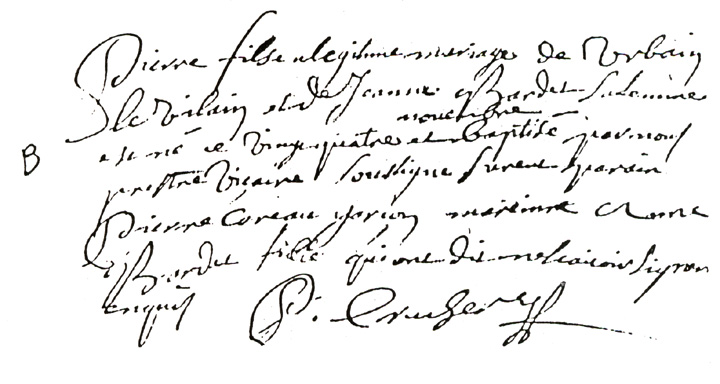 Pierre fils en legitime mariage de Urbain
le vilain et de Jeanne Bardet sa femme
novembre
B
est né ce vingt quatre et baptisé par nous
prestre vicaire soussigné furent parain
Pierre Coreau garson mareinne Anne
Bardet fille qui ont dit ne scavoir signer
enquis
P. Crucher